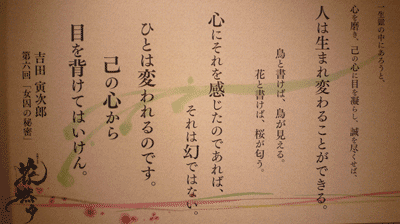 一生獄の中にあろうと、
心を磨き、己の心に目を凝らし、誠を尽くせば、
人は生まれ変わることができる。
鳥と書けば、鳥が見える。
花と書けば、桜が匂う。
心にそれを感じたのであれば、
それは幻ではない。
ひとは変われるのです。
己の心から
目を背けてはいけん。
吉田 寅次郎
第六回「女囚の秘密」
花燃ゆ